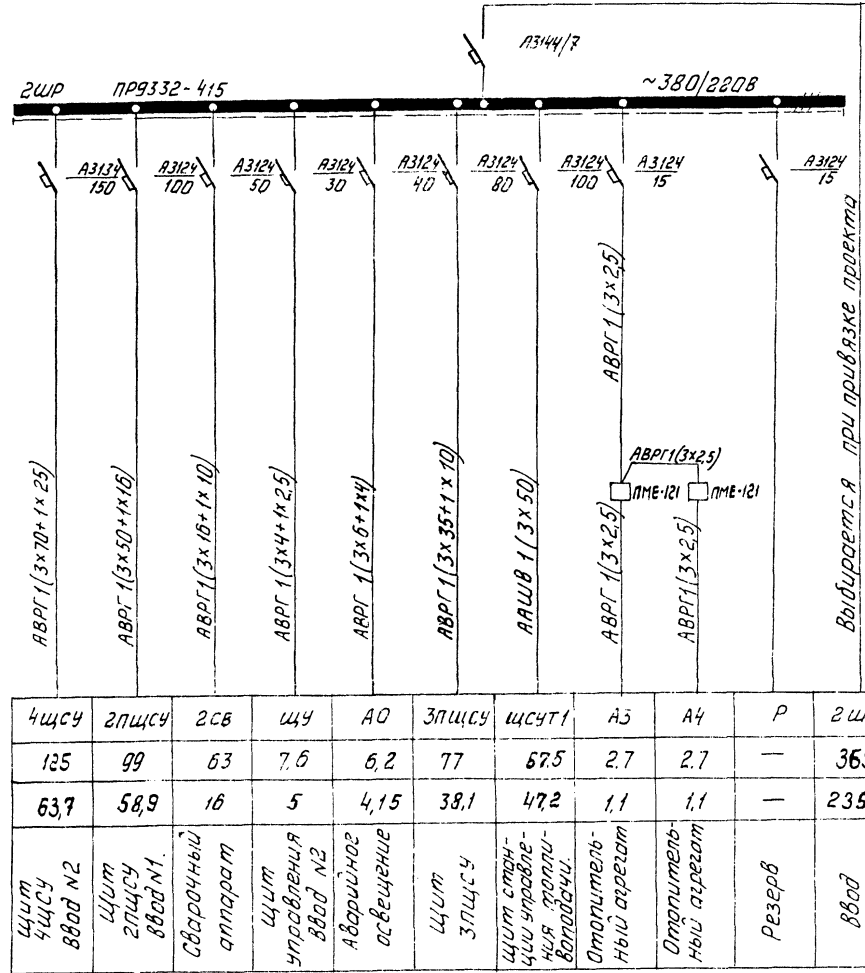 А3144/7
2ШР ПР9332-415 ~380/220В
А3134 А3124 А3124 А3124 А3124 А3124 А3124 А3124 А3124
150 100 50 30 40 80 100 15 15
АВРГ 1(3×70+1×25)
АВРГ 1(3×50+1×16)
АВРГ 1(3×16+1×10)
АВРГ 1(3×4+1×2,5)
АВРГ 1(3×6+1×4)
АВРГ 1(3×35+1×10)
ААШВ 1(3×50)
АВРГ 1(3×2,5)
АВРГ1(3×2,5)
ПМЕ-121 ПМЕ-121
АВРГ 1(3×2,5)
АВРГ1(3×2,5)
Выбирается при привязке проекта
4ЩСУ 2ПЩСУ 2СВ ЩУ АО 3ПЩСУ ЩСУТ1 А3 А4 Р
99 63 7,6 6,2 77 67,5 2.7 2.7 —
63,7 58,9 16 5 4,15 38,1 47,2 1,1 1,1 —
Щит
4ЩСУ
Ввод N2
Щит
2ПЩСУ
Ввод N1.
Сварочный
аппарат
Щит
управления
Ввод N2
Аварийное
освещение
Щит
3ПЩСУ
Щит стан-
ции управле-
ния топли-
воподачи.
Отопитель-
ный агрегат
Отопитель-
ный агрегат
Резерв
Ввод